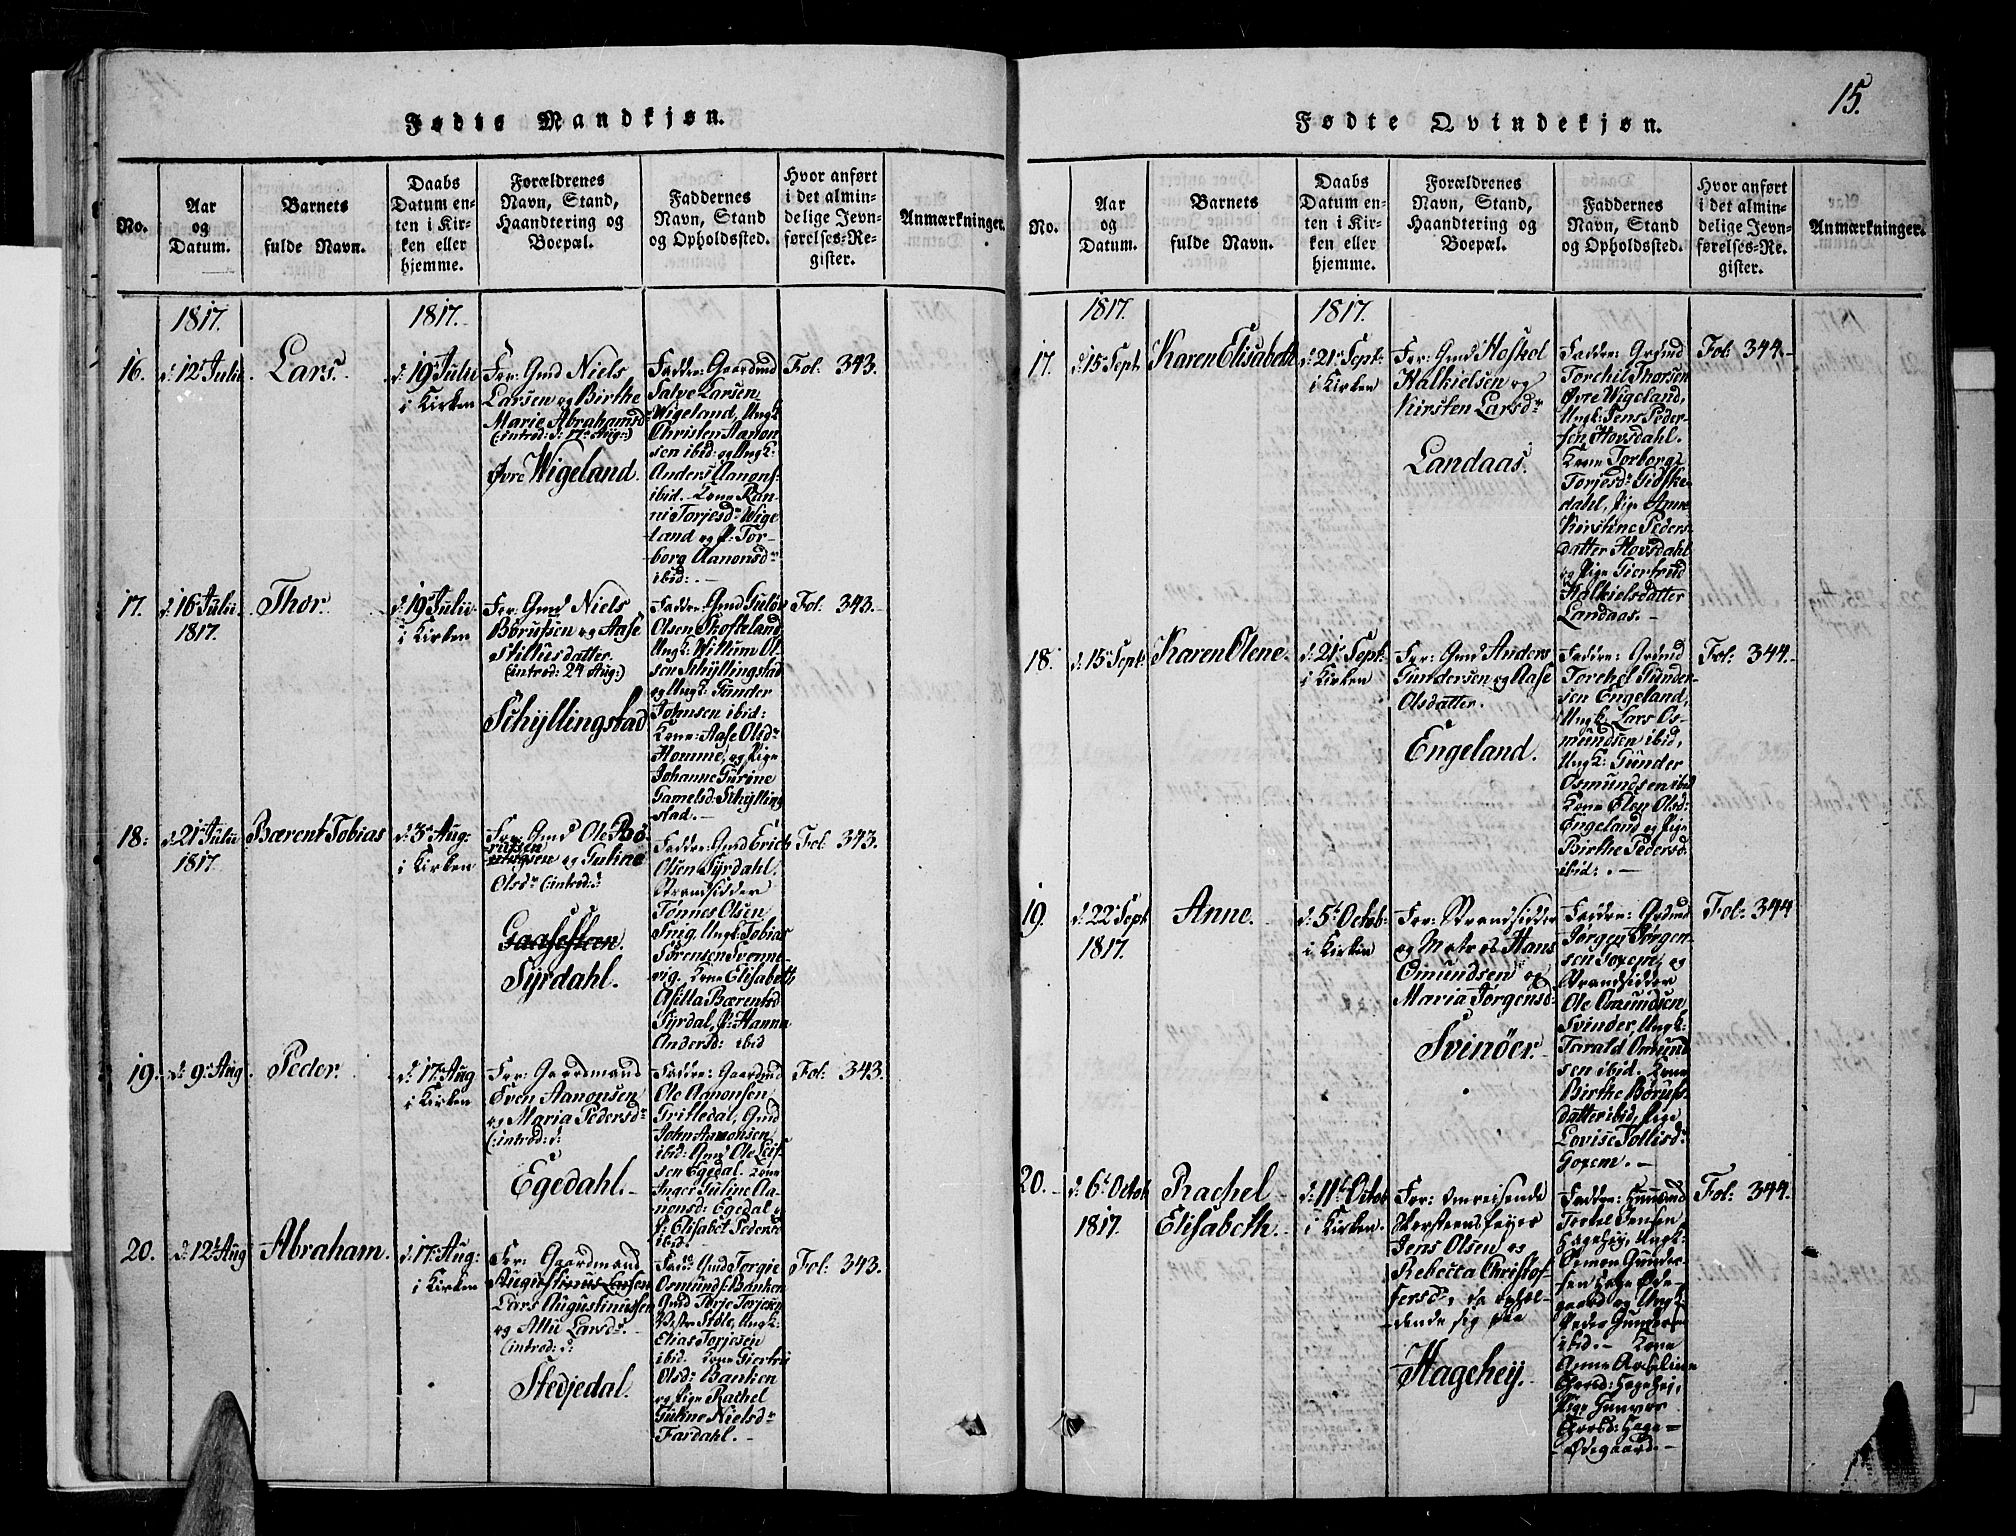 15.
Fødte Mandkjøn.
No.
Aar
og
Datum.
Barnets
fulde Navn.
Daabs
Datum en-
ten i Kir-
ken eller
hjemme.
Forældrenes
Navn, Stand,
Haandtering og
Boepæl.
Faddernes
Navn, Stand
og Opholdssted.
Hvor anført
i det almin-
delige Jevn-
førelses-Re-
gister.
Anmærkninger.
1817.
1817.
16.
d: 12t Julii
Lars.
d: 19 Julii
i Kirken
For: Gmd Niels
Larsen og Birthe
Marie Abrahamsd
(:introd: d: 17 Aug:)
Øvre Wigeland.
Faddre: Gaardmd
Salve Larsen
Wigeland, Ungk:
Christen Aanon-
sen ibid: og Ungk:
Anders Aanons:
ibid. Kone Ran-
ni Torjesdr Wige-
land og P: Tor-
borg Aanonsdr
ibid: .-
Fol: 343.
17.
d: 16 Julii
1817.
Thor.
d: 19 Julii
i Kirken
For: Gmd Niels
Børufsen og Aase
Stillusdatter.
(introd: 24 Aug:)
Schyllingstad
Faddre: Gmd
Olsen Skofteland,
Ungk: Willum Ol-
sen Schyllingstad
og Ungk: Gunder
Johnsen ibid:
Kone: Aase Olsdr
Homme, og Pige
Johanne Gurine
Gamelsd: Schylling-
stad.
Fol: 343.
18:
d: 21 Julii
1817.
Bærent Tobias
d: 3 Aug:
i Kirken
For: Gmd Ole Bø-
rufsen
og Guline
Olsdr (:introd: d:
Gaasesteen.
Syrdahl.
Faddre: Gmd Erich
Olsen Syrdahl.
Strandsidder
Tønnes Olsen
Snig. Ungk: Tobias
Sørensen Svenne-
vig. Kone Elisabeth
Asilla Bærentsd
Syrdal, P: Hanna
Andersd: ibid
Fol: 343.
19.
d: 9 Aug
Peder.
d: 17 Aug
i Kirken
For: Gaardmand
Sven Aanonsen
og Maria Pedersdr
(:introd: d:
Egedahl.
Faddre: Gaardmd
Ole Aanonsen
Gritledal, Gmd
John Aanonsen
ibid: Gmd Ole Leif-
sen Egedal. Kone
Inger Guline Aa-
nonsd: Egedal og
P: Elisabet Pedersd
ibid:
Fol: 343.
20.
d: 12t Aug
Abraham.
d: 17 Aug:
i Kirken
For: Gaardmand
Augustinus Larsen
Lars Augustinussen
og Allu Larsd:
(introd: d:
Stedjedal.
Fad: Gmd Torgie
Osmunds: Banken
Gmd Torje Torjesen
Støle, Ungk:
Elias Torjesen
ibid. Kone Giertru
Olsd: Banken
og Pige Rachel
Guline Nielsdr
Fardahl.
Fol: 343.
Fødte Qvindekjøn.
No.
Aar
og
Datum.
Barnets
fulde Navn.
Daabs
Datum en-
ten i Kir-
ken eller
hjemme.
Forældrenes
Navn, Stand,
Haandtering og
Boepæl.
Faddernes
Navn, Stand
og Opholdssted.
Hvor anført
i det almin-
delige Jevn-
førelses-Re-
gister.
Anmærkninger.
1817.
1817.
17.
d: 15 Sept
Karen Elisabeth
d: 21 Sept:
i Kirken
For: Gmd Hoskol
Halkielsen og
Kirsten Larsdr
Landaas.
Faddre: Grdmd
Torchil Thorsen
Øvre Wigeland,
Ungk: Jens Peder-
sen Hovsdahl.
Kone Torborg
Torjesdr Gidske-
dahl, Pige Anne
Kirstine Peders-
datter Hovsdahl
og Pige Giertrud
Halkielsdatter
Landaas. -
Fol: 344.
18.
d: 15 Sept:
Karen Olene.
d: 21 Sept:
i Kirken
For: Gmd Anders
Gundersen og Aase
Olsdatter.
Engeland.
Faddre: Grdmd
Torchel Gunder-
sen Engeland,
Ungk: Lars Os-
mundsen ibid,
Ungk: Gunder
Osmundsen ibid
Kone Elen Olsd:
Engeland og Pige
Birthe Pedersd:
ibid: . -
Fol: 344.
19.
d: 22 Sept
1817.
Anne.
d: 5t Octob:
i Kirken
For: Strandsidder
og Matros Hans
Omundsen og
Maria Jørgensd:
Svinöer.
Faddre: Grdmd
Jørgen Jørgen-
sen Goxem, og
Strandsidder
Ole Omundsen
Svinöer, Ungk:
Tarald Omund-
sen ibid. Kone
Birthe Børufs-
datter ibid, Pige
Lovise Tollisd:
Goxem. -
Fol: 344
20.
d: 6t Octob
1817.
Rachel
Elisabeth.
d: 11t Octob
i Kirken.
For: omreisende
Skorsteensfeyer
Jens Olsen og
Rebecca Christof-
fersd:, da ophol-
dende sig paa
Hagehey.
Faddre: Huusmd
Torkel Jensen
Hagehey, Ungk:
Semon Gunder-
sen Hage Øde-
gaard og Ungk:
Peder Gunders:
ibid. - Kone
Anne Axeline
Hagehei,
Pige Gunvor
Hage-
Ødegaard. -
Fol: 344.